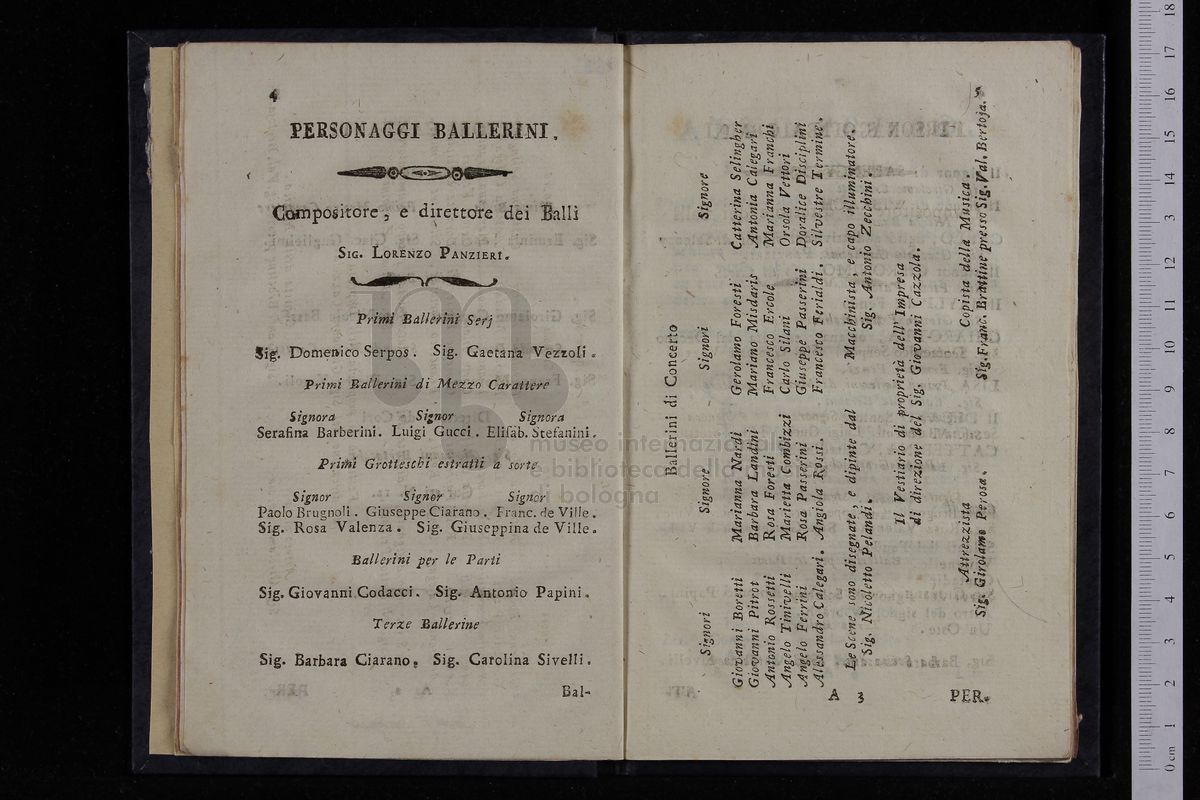 4
PERSONAGGI BALLERINI.
Compositore, e direttore dei Balli
SIG. LORENZO PANZIERI.
Primi Ballerini Serj
Sig. Domenico Serpos. Sig. Gaetana Vezzoli.
Primi Ballerini di Mezzo Carattere
Signora Signor Signora
Serafina Barberini. Luigi Gucci. Elisab. Stefanini.
Primi Grotteschi estratti a sorte
Signor Signor Signor
Paolo Brugnoli. Giuseppe Ciarano. Franc. de Ville.
Sig. Rosa Valenza. Sig. Giuseppina de Ville.
Ballerini per le Parti
Sig. Giovanni Codacci. Sig. Antonio Papini.
Terze Ballerine
Sig. Barbara Ciarano, Sig. Carolina Sivelli.
Bal-
5
Ballerini di Concerto
Signori Signore Signori Signore
Giovanni Boretti Marianna Nardi Gerolamo Foresti Catterina Selingher
Giovanni Pitrot Barbara Landini Mariano Misdaris Antonia Calegari
Antonio Rossetti Rosa Foresti Francesco Ercole Marianna Franchi
Angelo Tinivelli Marietta Combizzi Carlo Silani Orsola Vettori
Angelo Ferrini Rosa Passerini Giuseppe Passerini Doralice Disciplini
Alessandro Calegari. Angiola Rossi. Francesco Ferialdi. Silvestre Termine.
Le Scene sono disegnate, e dipinte dal Macchinista, e capo illuminatore.
Sig. Nicoletto Pelandi. Sig. Antonio Zecchini.
Il Vestiario di proprietà dell' Impresa
di direzione del Sig. Giovanni Cazzola.
Attrezzista Copista della Musica.
Sig. Girolamo Perosa. Sig. Franc. Brattine presso Sig. Val. Bertoja.
A 3 PER-
museo internazionale
e biblioteca della
di bologna
0 cm 1 2 3 4 5 6 7 8 9 10 11 12 13 14 15 16 17 18